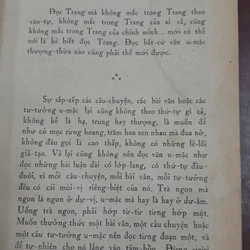 Đọc Trang mà không mắc trong Trang theo
văn-tự, không mắc trong Trang của ai cả, cũng
không mắc trong Trang của chính mình... mới có thể
nói là kẻ biết đọc Trang. Đọc bất-cứ văn u-mặc
thượng-thừa nào cũng phải thế mới được.
*
* *
Sự sắp-xếp các câu-chuyện, các bài văn hoặc các
tư-tưởng u-mặc lại cũng không theo thứ-tự gì cả,
không kể là hạ, trung hay thượng, là muốn để
như cỏ mọc rừng hoang, trăm hoa sen nhau mà đua nở,
không đâu gọi là cao thấp, không có những lề-lối
giả-tạo. Vả lại cũng không nên đọc văn u-mặc như
đọc những bài luận dài có lớp-lang, có thứ-tự đầu-
đuôi, vì mỗi câu-chuyện, mỗi bài văn, mỗi tư-tưởng
đều có cái mùi-vị riêng-biệt của nó. Trà ngon mà
không là ngon ở dư-vị, u-mặc mà hay là hay ở dư-âm.
Uống trà ngon, phải hớp từ-từ từng hớp một.
Muốn thưởng thức một bài văn, một câu chuyện hoặc
một câu tư-tưởng u-mặc nên đọc từng đoạn một, và
để tự-nhiên cho nó lắng vào tâm-hồn. Đừng